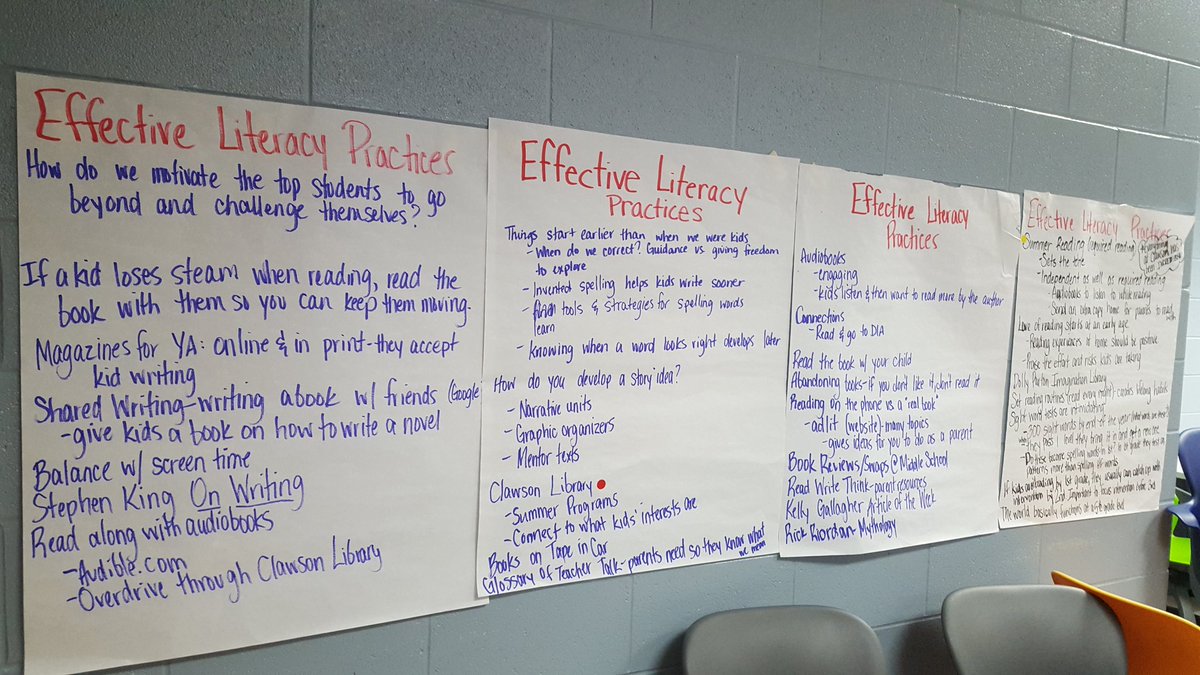 Effective Literacy Practices
How do we motivate the top students to go
beyond and challenge themselves?
If a kid loses steam when reading, read the
book with them so you can keep them moving.
Magazines for YA: online & in print-they accept
kid writing
Shared Writing-writing a book w/ friends (Google)
-give kids a book on how to write a novel
Balance w/ screen time
Stephen King On Writing
Read along with audiobooks
-Audible.com
-Overdrive through Clawson Library
Effective Literacy
Practices
Things start earlier than when we were kids
-When do we correct? Guidance vs. giving freedom
to explore
-Invented spelling helps kids write sooner
tools & strategies for spelling words
learn
-Knowing when a word looks right develops later
How do you develop a story idea?
-Narrative units
-Graphic organizers
-Mentor texts
Clawson Library
-Summer Programs
-Connect to what kids' interests are
Books on Tape in Car
Glossary of Teacher Talk-parents need so they know what
we mean
Effective Literacy
Practices
Audiobooks
-engaging
-kids listen & then want to read more by the author
Connections
-Read & go to DIA
Read the book w/ your child
Abandoning books-if you don't like it, don't read it
Reading on the phone vs a "real book"
-adlit (website)-many topics
-gives ideas for you to do as a parent
Book Reviews/Snaps @ Middle School
Read Write Think-parent resources
Kelly Gallagher Article of the Week
Rick Riordan-Mythology
Effective Literacy Practices
Summer Reading (required reading)
-Sets the tone
-Independent as well as required reading
-Audiobooks to listen to while reading
Send an extra copy home for parents to read
Love of reading starts at an early age.
-Reading experiences at home should be positive
-Praise the effort and risks kids are taking
Dolly Parton Imagination Library
Set reading routines (read every night)-creates lifelong habits
Sight word tests are intimidating
-300 sight words by end of the year
they pass 1 level they bring it in and get a new one
-Do these become spelling words in 1st? in 1st grade they test on
patterns more than spelling of words
If kids are by 1st grade, they usually can catch up with
intervention by 2nd. Important to focus intervention before 3rd
The world basically functions at a 6th grade level